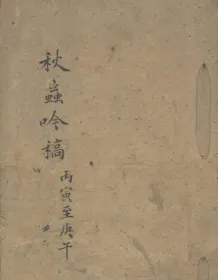 秋蟲吟稿 丙寅至庚午